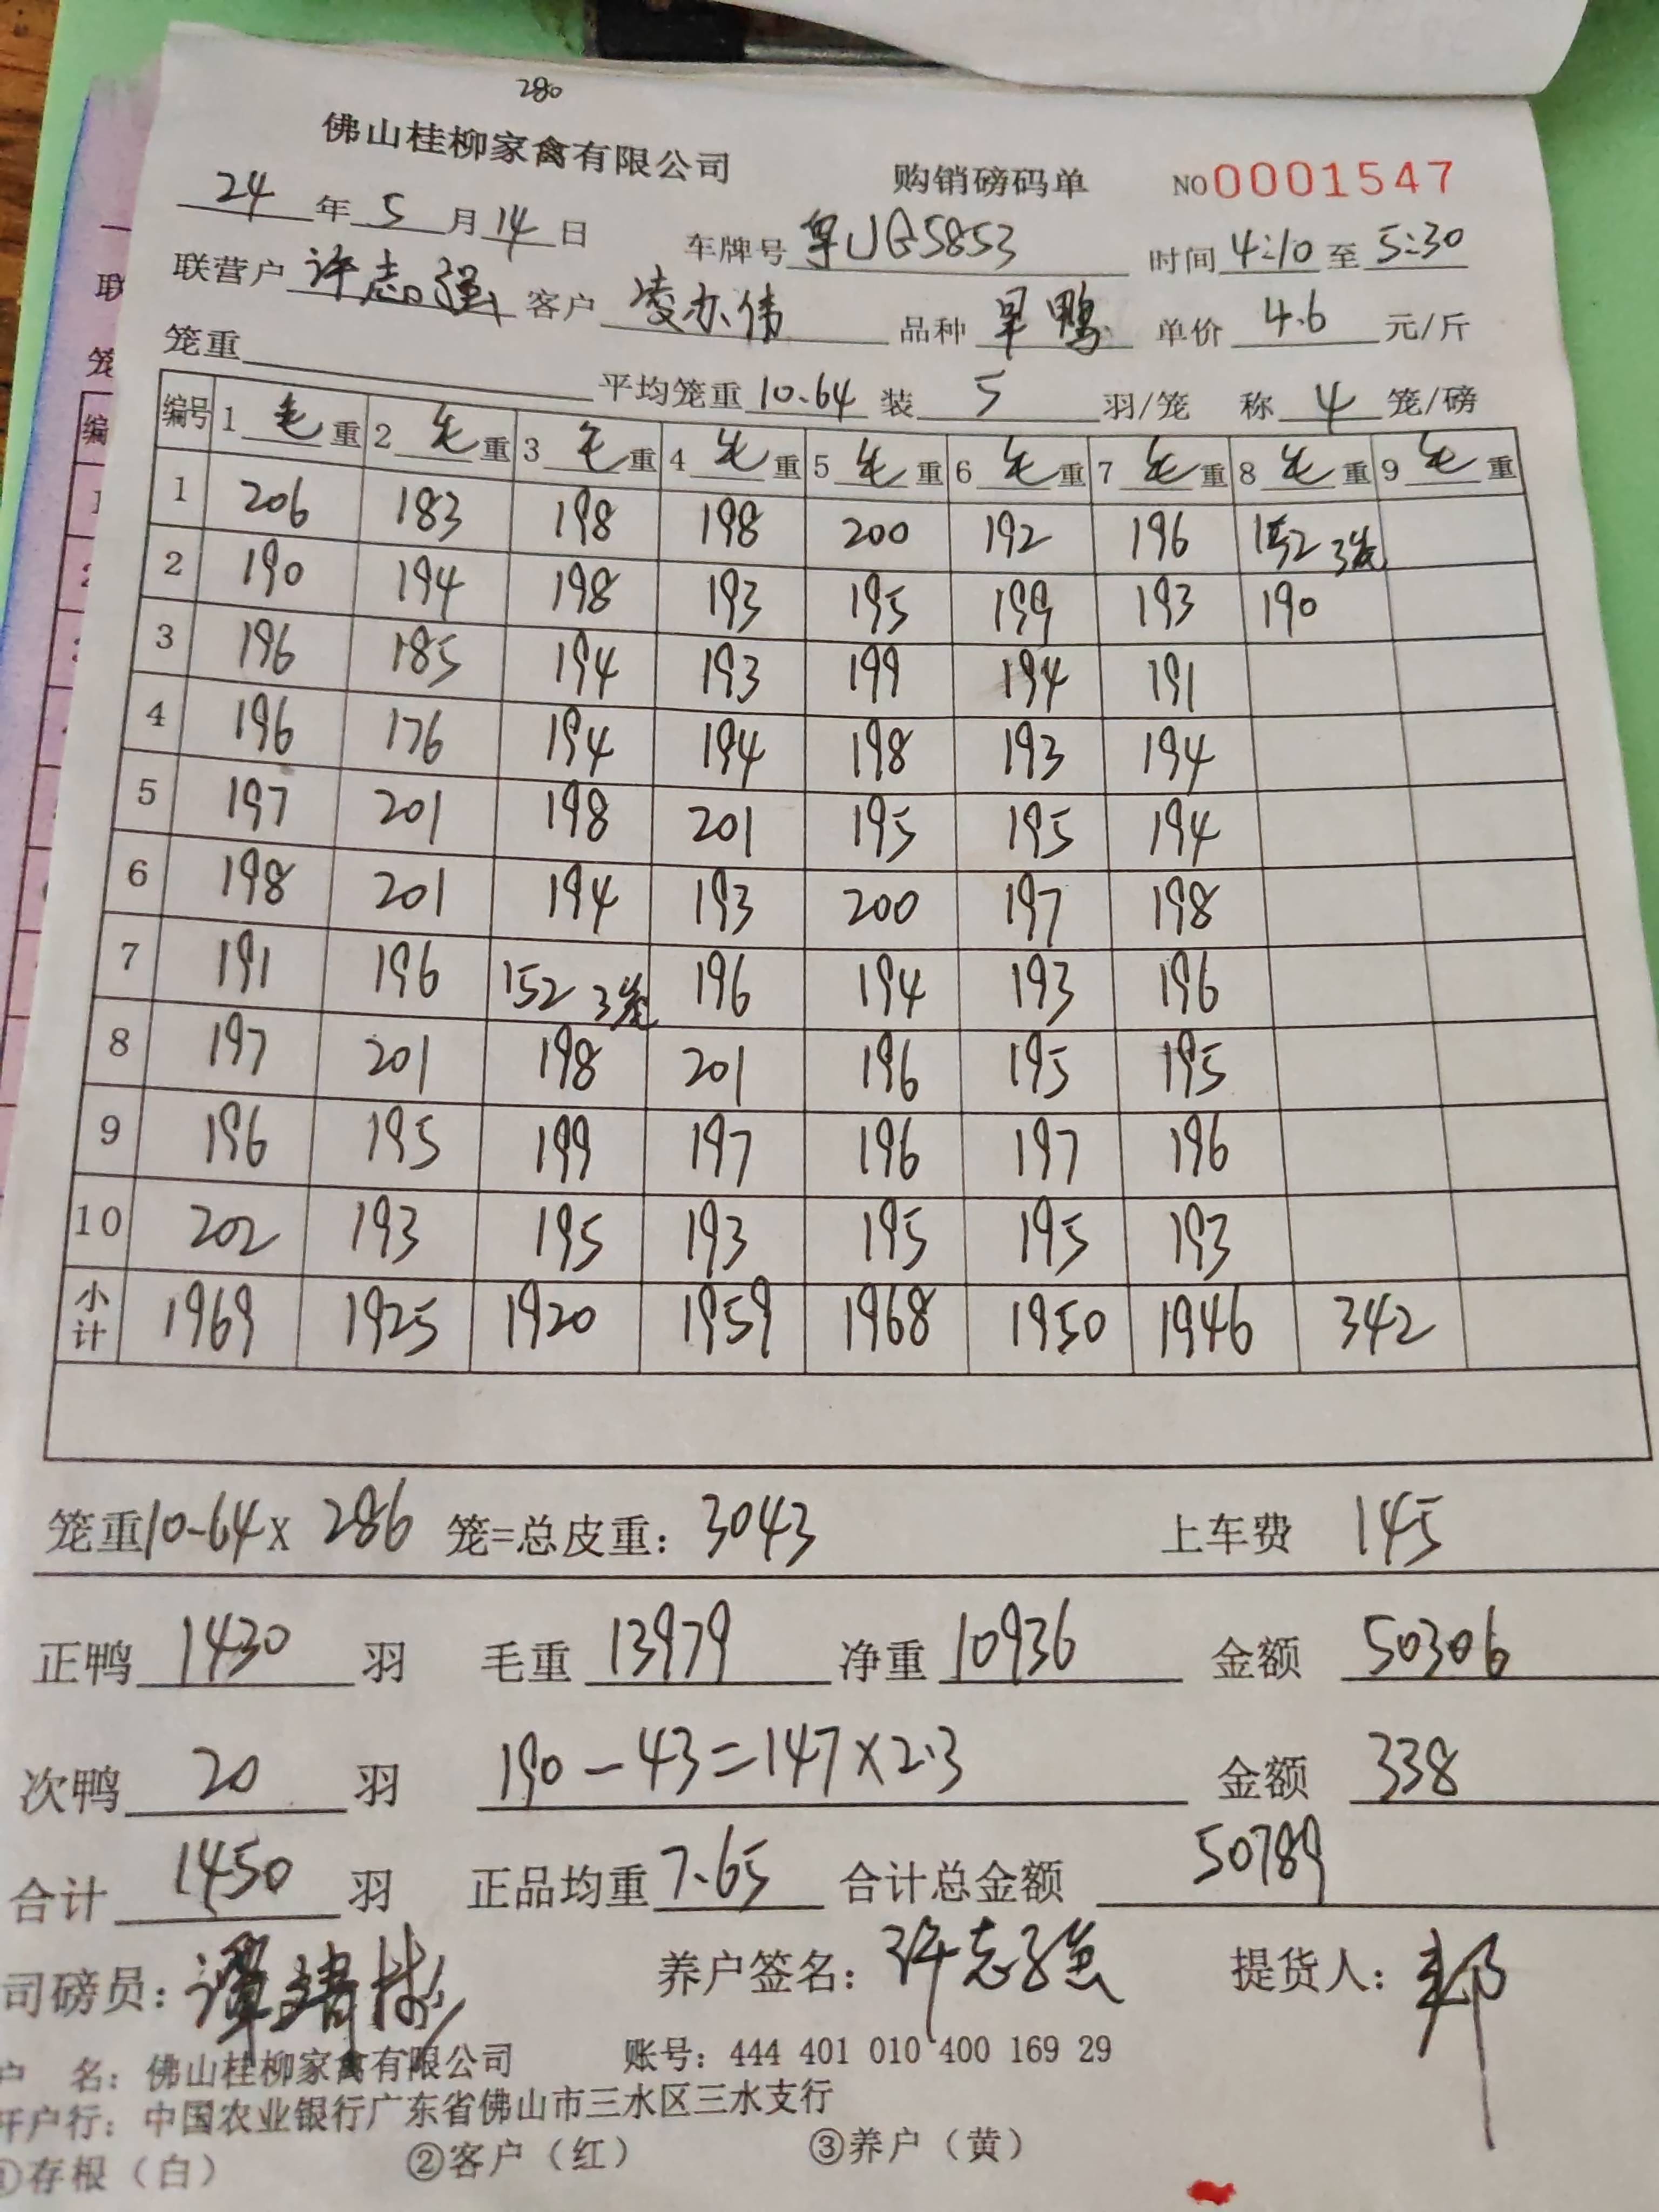 280
佛山桂柳家禽有限公司 购销磅码单 NO 0001547
24年5月14日 车牌号 粤JG5853 时间 4:10 至 5:30
联营户 许志强 客户 凌亦伟 品种 旱鸭 单价 4.6 元/斤
笼重 平均笼重 10.64 装 5 羽/笼 称 4 笼/磅
编号 1 毛重 2 毛重 3 毛重 4 毛重 5 毛重 6 毛重 7 毛重 8 毛重 9 毛重
1 206 183 198 198 200 192 196 152 3笼
2 190 194 198 193 195 199 193 190
3 196 185 194 193 199 194 191
4 196 176 194 194 198 193 194
5 197 201 198 201 195 195 194
6 198 201 194 193 200 197 198
7 191 196 152 3笼 196 194 193 196
8 197 201 198 201 196 195 195
9 196 195 199 197 196 197 196
10 202 193 195 193 195 195 193
小计 1969 1925 1920 1959 1968 1950 1946 342
笼重10-64 x 286 笼=总皮重: 3043 上车费 145
正鸭 1430 羽 毛重 13979 净重 10936 金额 50306
次鸭 20 羽 190-43=147×2.3 金额 338
合计 1450 羽 正品均重 7.65 合计总金额 50789
司磅员: 养户签名: 许志强 提货人: 邦
户 名: 佛山桂柳家禽有限公司 账号: 444 401 010 400 169 29
开户行: 中国农业银行广东省佛山市三水区三水支行
①存根（白） ②客户（红） ③养户（黄）